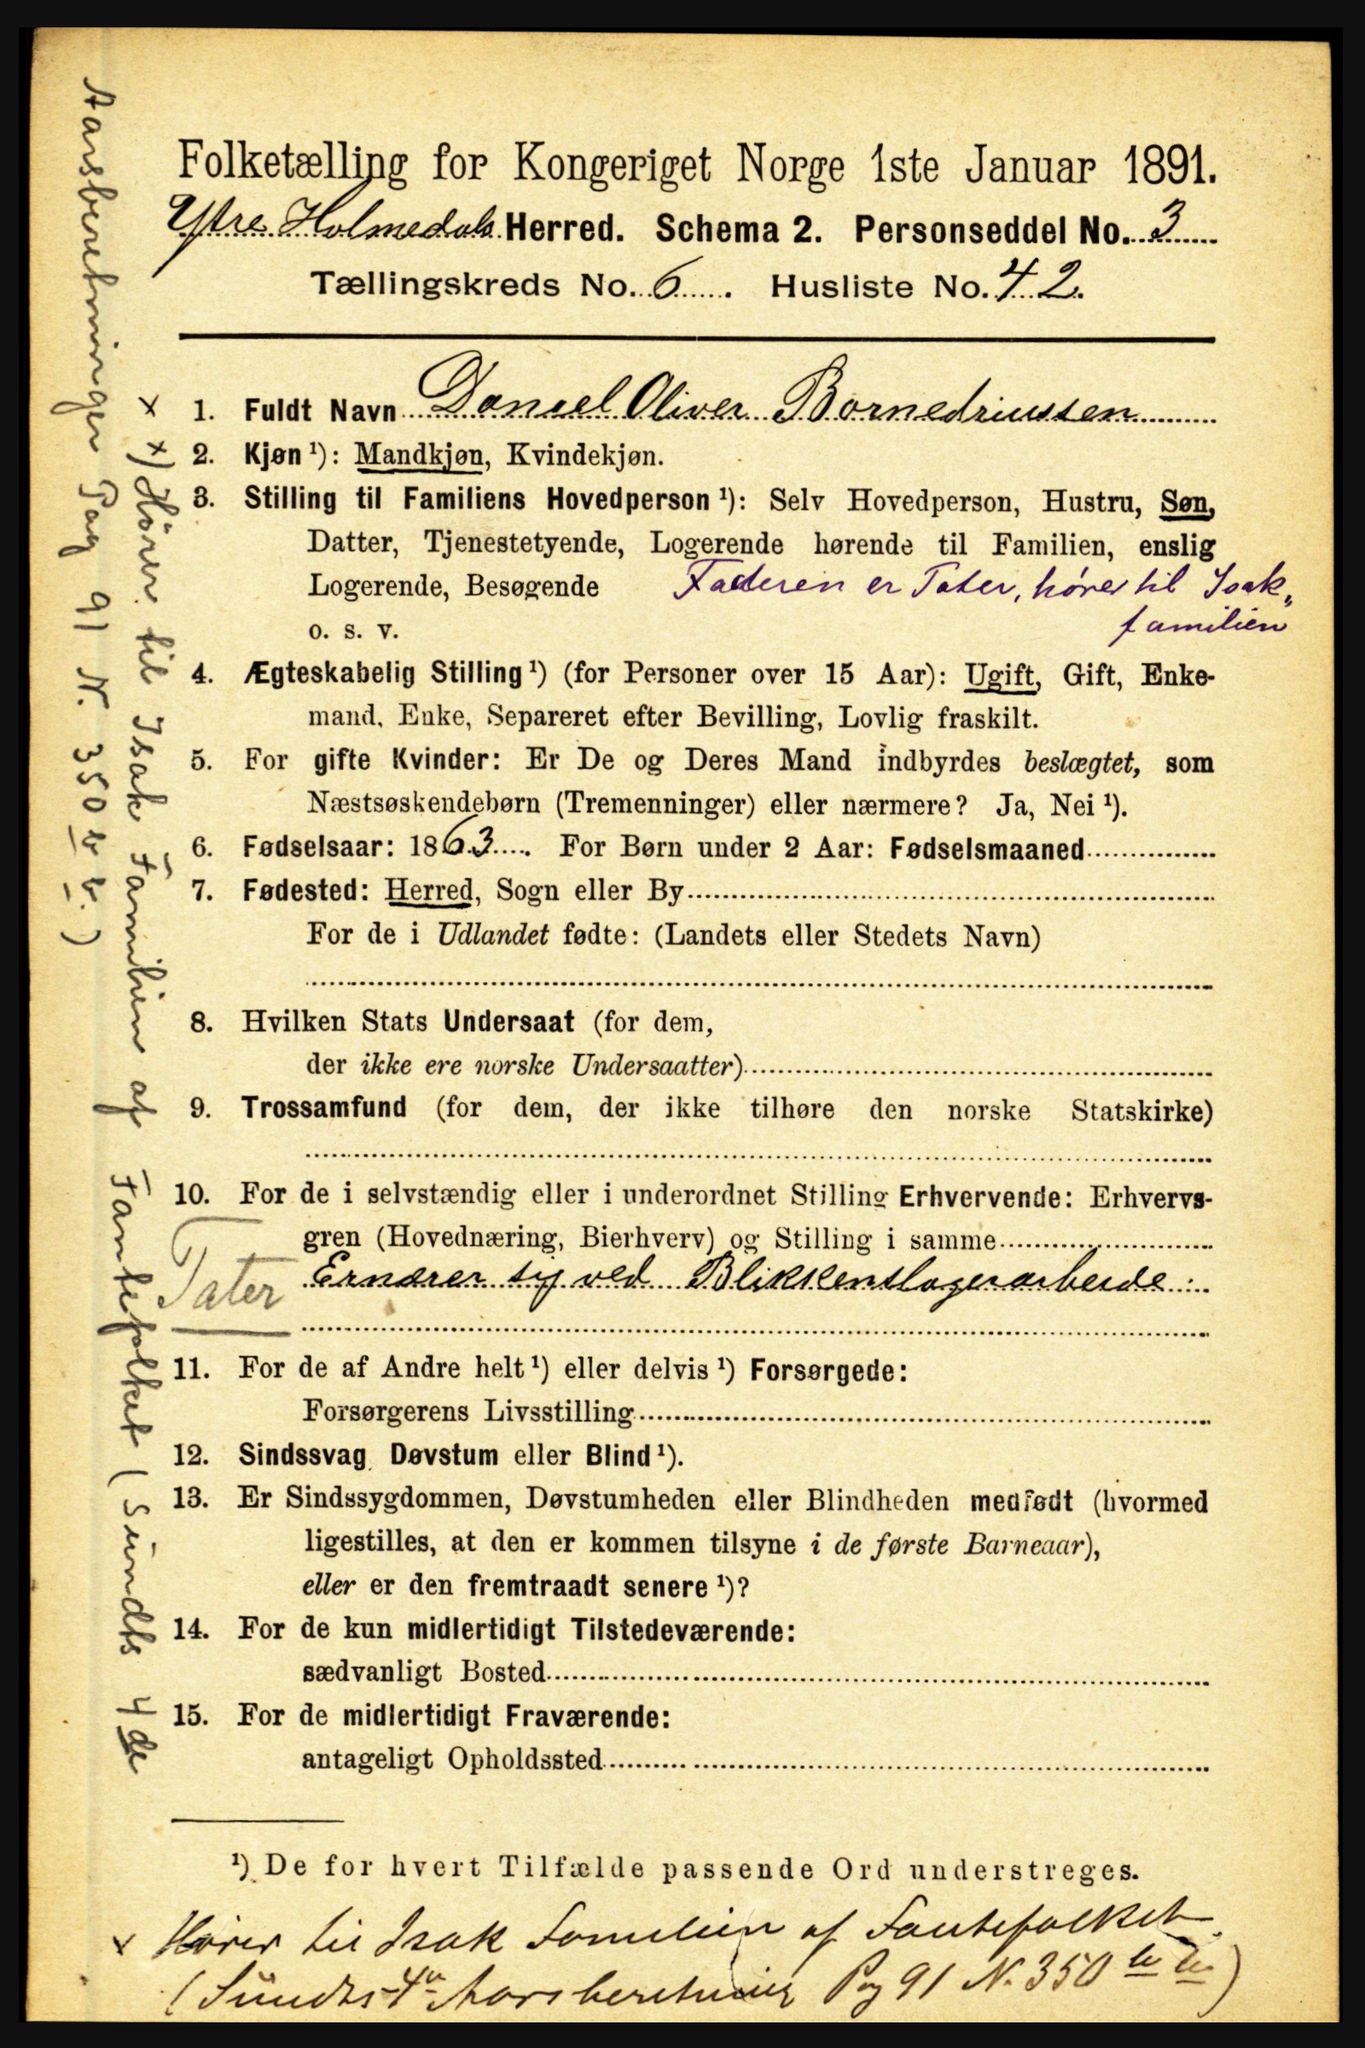 Folketælling for Kongeriget Norge 1ste Januar 1891.
Ytre Holmedals Herred. Schema 2. Personseddel No. 3
Tællingskreds No. 6. Husliste No. 42.
x 1. Fuldt Navn Daniel Oliver Bornedriussen
2. Kjøn ¹): Mandkjøn, Kvindekjøn.
3. Stilling til Familiens Hovedperson ¹): Selv Hovedperson, Hustru, Søn,
Datter, Tjenestetyende, Logerende hørende til Familien, enslig
Logerende, Besøgende Faderen er Tater, hører til Isak„
o. s. v. familien
4. Ægteskabelig Stilling ¹) (for Personer over 15 Aar): Ugift, Gift, Enke-
mand, Enke, Separeret efter Bevilling, Lovlig fraskilt.
5. For gifte Kvinder: Er De og Deres Mand indbyrdes beslægtet, som
Næstsøskendebørn (Tremenninger) eller nærmere? Ja, Nei ¹).
6. Fødselsaar: 1863. For Børn under 2 Aar: Fødselsmaaned
7. Fødested: Herred, Sogn eller By
For de i Udlandet fødte: (Landets eller Stedets Navn)
8. Hvilken Stats Undersaat (for dem,
der ikke ere norske Undersaatter)
9. Trossamfund (for dem, der ikke tilhøre den norske Statskirke)
10. For de i selvstændig eller i underordnet Stilling Erhvervende: Erhvervs-
gren (Hovednæring, Bierhverv) og Stilling i samme
Tater Ernærer sig ved Blikkenslagerarbeide.
11. For de af Andre helt ¹) eller delvis ¹) Forsørgede:
Forsørgerens Livsstilling
12. Sindssvag, Døvstum eller Blind ¹).
13. Er Sindssygdommen, Døvstumheden eller Blindheden medfødt (hvormed
ligestilles, at den er kommen tilsyne i de første Barneaar),
eller er den fremtraadt senere ¹)?
14. For de kun midlertidigt Tilstedeværende:
sædvanligt Bosted
15. For de midlertidigt Fraværende:
antageligt Opholdssted
¹) De for hvert Tilfælde passende Ord understreges.
x Hører til Isak Familien af Fantefolket
(Sundts 4de Aarsberetning Pag 91 N. 350
x) Hører til Isak Familien af Fantefolket (Sundts 4de
Aarsberetninger Pag 91 N. 350